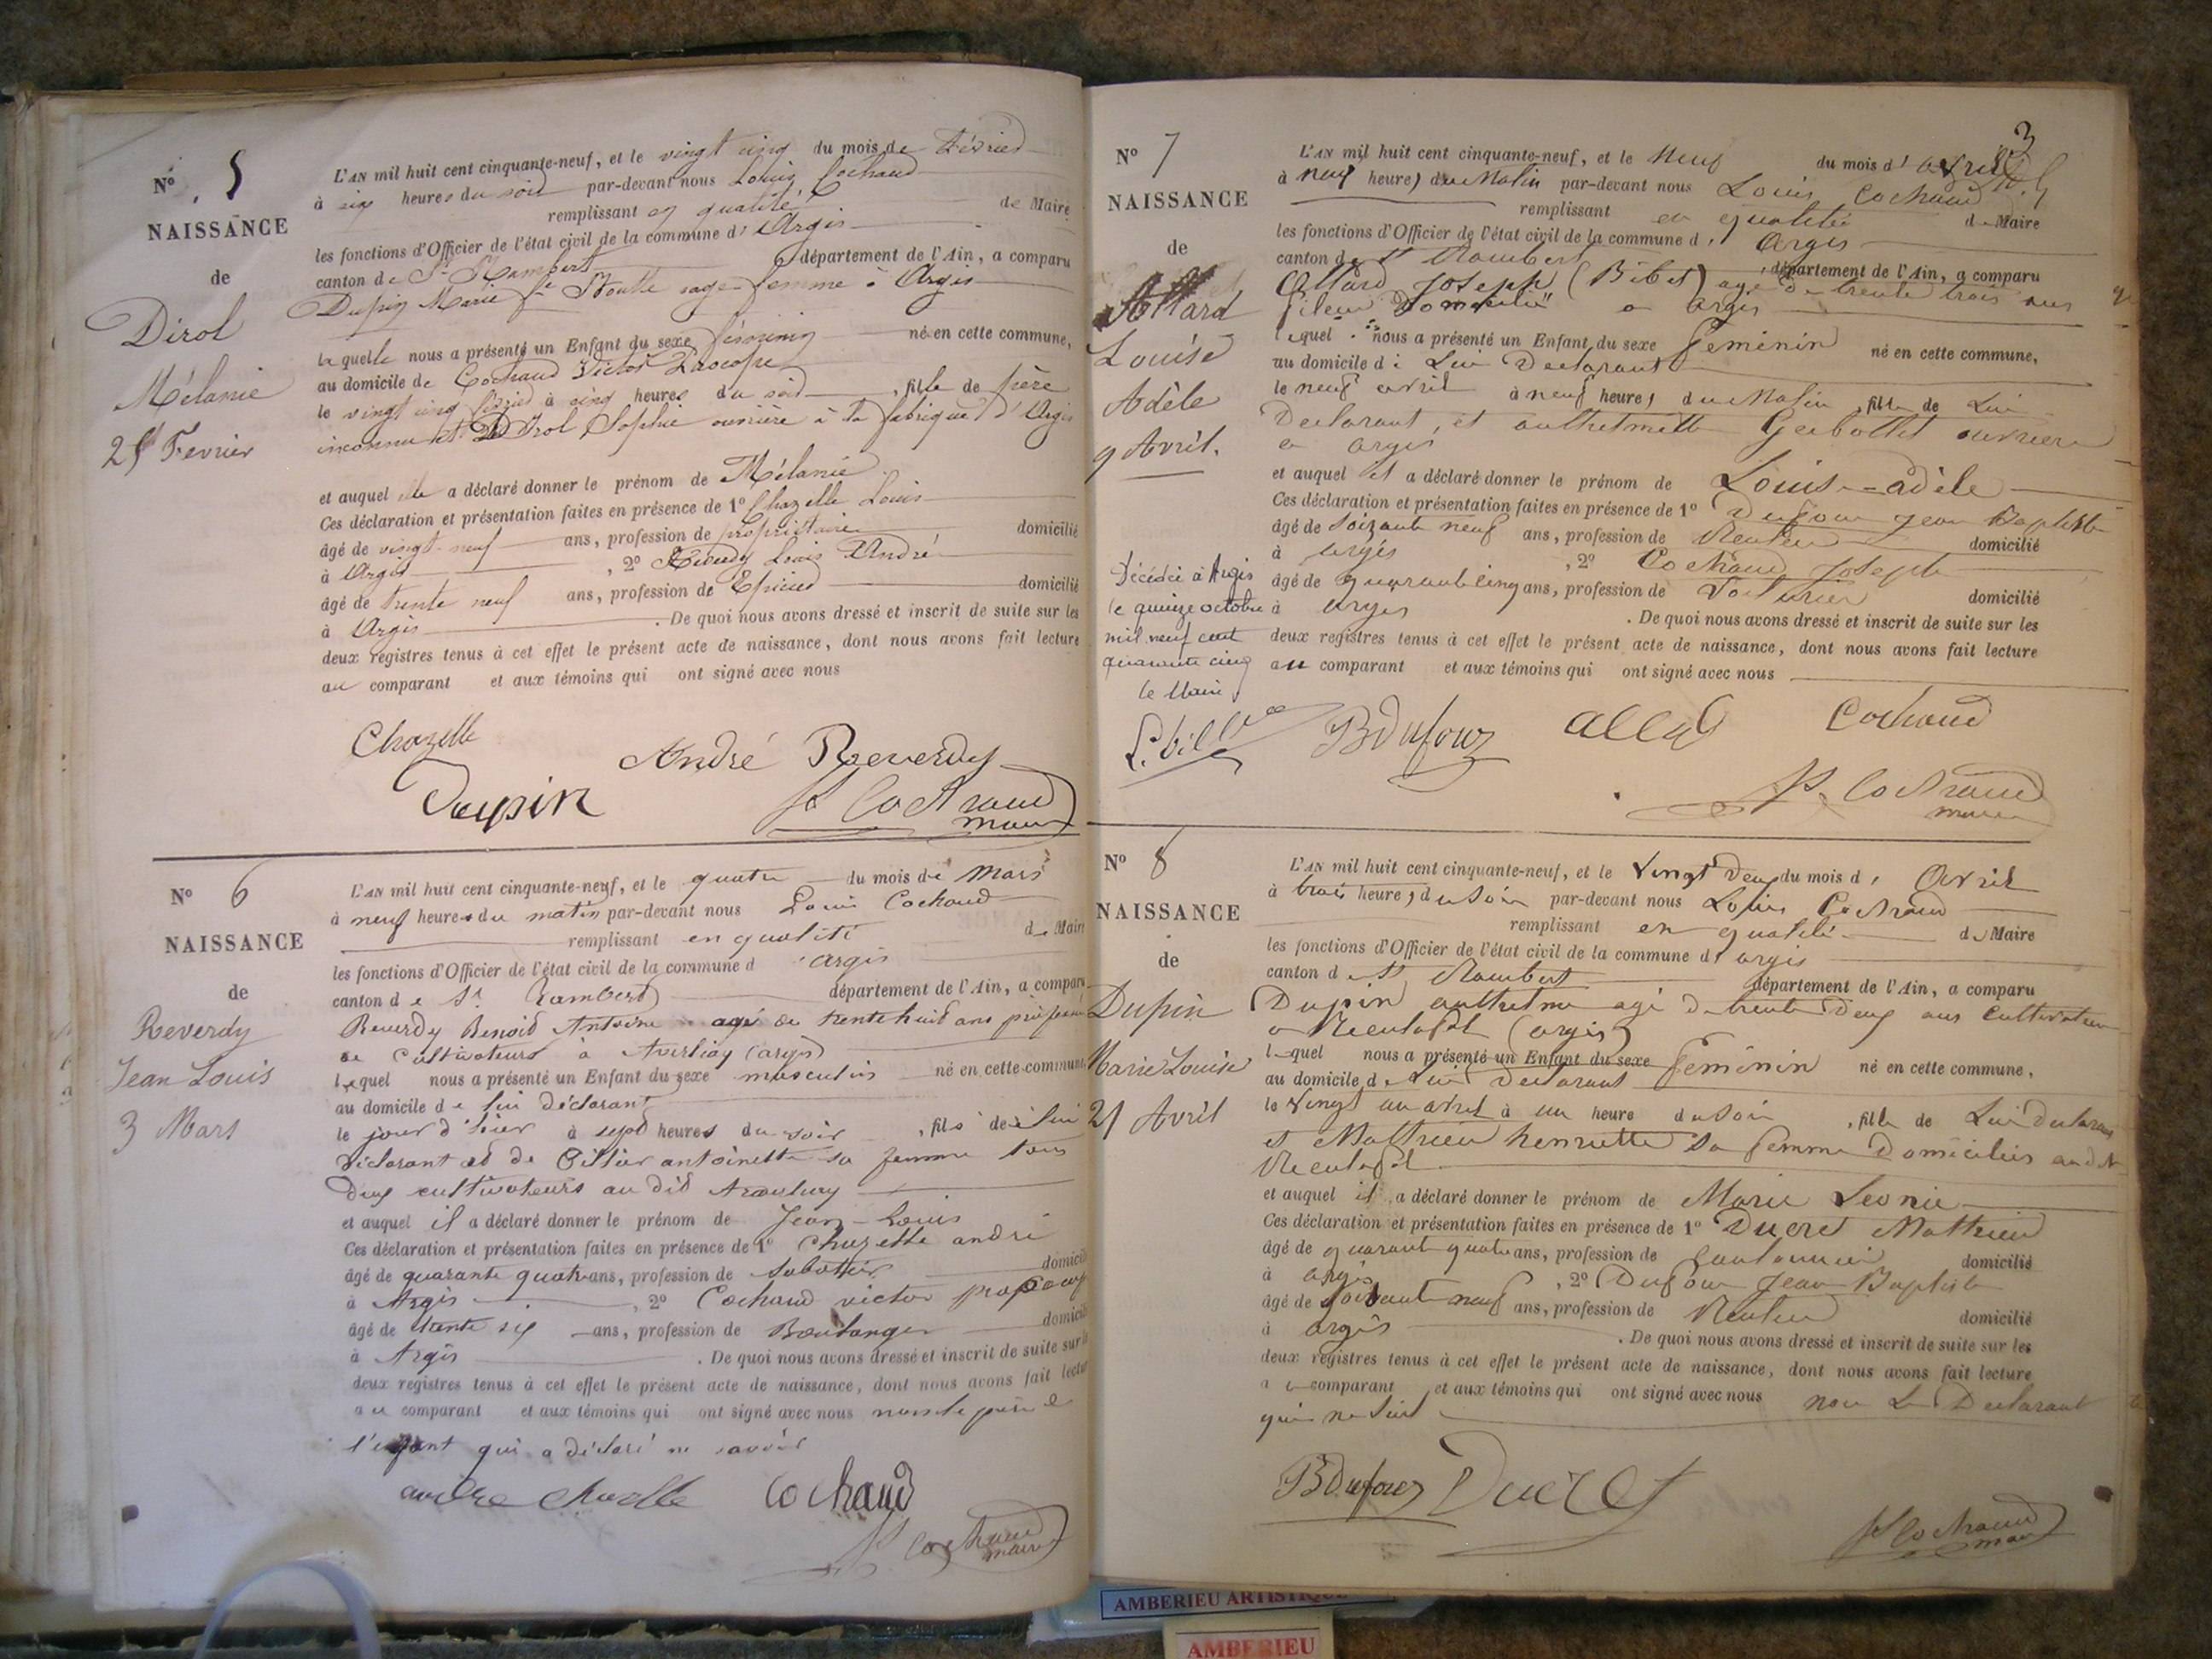 N° 5
NAISSANCE
de
Dirol
Mélanie
25 Fevrier
L'AN mil huit cent cinquante-neuf, et le vingt cinq du mois de Février
à six heures du soir par-devant nous Louis Cochaud
remplissant en qualité de Maire
les fonctions d'Officier de l'état civil de la commune d' Argis
canton de St Rambert département de l'Ain, a comparu
Dupin Marie sage femme à Argis
laquelle nous a présenté un Enfant du sexe féminin né en cette commune,
au domicile de Cochaud Victor Procope
le vingt cinq février à cinq heures du soir, fille de père
inconnu et de Dirol Sophie ouvrière à la fabrique d'Argis
et auquel elle a déclaré donner le prénom de Mélanie
Ces déclaration et présentation faites en présence de 1° Chazelle Louis
âgé de vingt-neuf ans, profession de propriétaire domicilié
à Argis, 2° Reverdy Louis André
âgé de trente neuf ans, profession de Epicier domicilié
à Argis. De quoi nous avons dressé et inscrit de suite sur les
deux registres tenus à cet effet le présent acte de naissance, dont nous avons fait lecture
au comparant et aux témoins qui ont signé avec nous
Chazelle
André Reverdy
Dupin
Cochaud
maire
N° 6
NAISSANCE
de
Reverdy
Jean Louis
3 Mars
L'AN mil huit cent cinquante-neuf, et le quatre du mois de Mars
à neuf heures du matin par-devant nous Louis Cochaud
remplissant en qualité de Maire
les fonctions d'Officier de l'état civil de la commune d'argis
canton de St Rambert département de l'Ain, a comparu
Reverdy Benoid Antoine agé de trente huit ans
de cultivateurs à (argis)
lequel nous a présenté un Enfant du sexe masculin né en cette commune
au domicile de lui déclarant
le jour d'hier à sept heures du soir, fils de lui
déclarant et de antoinette sa femme tous
deux cultivateurs au dit
et auquel il a déclaré donner le prénom de Jean-Louis
Ces déclaration et présentation faites en présence de 1° Chazelle andré
âgé de quarante quatre ans, profession de Sabotier domicilié
à Argis, 2° Cochaud victor
âgé de trente six ans, profession de Boulanger domicilié
à Argis. De quoi nous avons dressé et inscrit de suite sur les
deux registres tenus à cet effet le présent acte de naissance, dont nous avons fait lecture
au comparant et aux témoins qui ont signé avec nous
l'enfant qui a déclaré ne savoir
andre chazelle Cochaud
Cochaud
maire
3
N° 7
NAISSANCE
de
Allard
Louise
Adèle
9 Avril.
Décédée à Argis
le quinze octobre
mil neuf cent
quarante cinq
le Maire
L'AN mil huit cent cinquante-neuf, et le Neuf du mois d'avril
à neuf heures du Matin par-devant nous Louis Cochaud
remplissant en qualité de Maire
les fonctions d'Officier de l'état civil de la commune d' Argis
canton de St Rambert département de l'Ain, a comparu
Allard Joseph (Bibet) agé de trente trois ans
fileur Domicilié a argis
lequel nous a présenté un Enfant du sexe feminin né en cette commune,
au domicile de Lui Declarant
le neuf avril à neuf heures du Matin, fille de Lui
Declarant, et anthelmette Gerbollet ouvriere
a argis
et auquel il a déclaré donner le prénom de Louise-adèle
Ces déclaration et présentation faites en présence de 1° Dufour Jean Baptiste
âgé de soizante neuf ans, profession de Rentier domicilié
à argis, 2° Cochaud Joseph
âgé de quarante cinq ans, profession de Voiturier domicilié
à argis. De quoi nous avons dressé et inscrit de suite sur les
deux registres tenus à cet effet le présent acte de naissance, dont nous avons fait lecture
au comparant et aux témoins qui ont signé avec nous
BDufour Allard Cochaud
Cochaud
maire
N° 8
NAISSANCE
de
Dupin
Marie Louise
21 Avril
L'AN mil huit cent cinquante-neuf, et le Vingt Deux du mois d' Avril
à trois heures du Soir par-devant nous Louis Cochaud
remplissant en qualité de Maire
les fonctions d'Officier de l'état civil de la commune d' argis
canton de St Rambert département de l'Ain, a comparu
Dupin anthelme agé de trente Deux ans Cultivateur
a (argis)
lequel nous a présenté un Enfant du sexe feminin né en cette commune,
au domicile de Lui Declarant
le Vingt un avril à un heure du Soir, fille de Lui Declarant
et Mathieu henriette Sa femme Domiciliés
et auquel il a déclaré donner le prénom de Marie Leonie
Ces déclaration et présentation faites en présence de 1° Ducret Mathieu
âgé de quarant quatre ans, profession de Cantonnier domicilié
à argis, 2° Dufour Jean Baptiste
âgé de Soixante neuf ans, profession de Rentier domicilié
à argis. De quoi nous avons dressé et inscrit de suite sur les
deux registres tenus à cet effet le présent acte de naissance, dont nous avons fait lecture
au comparant et aux témoins qui ont signé avec nous non Le Declarant
BDufour Ducret
Cochaud
maire
AMBERIEU ARTISTIQUE
AMBERIEU